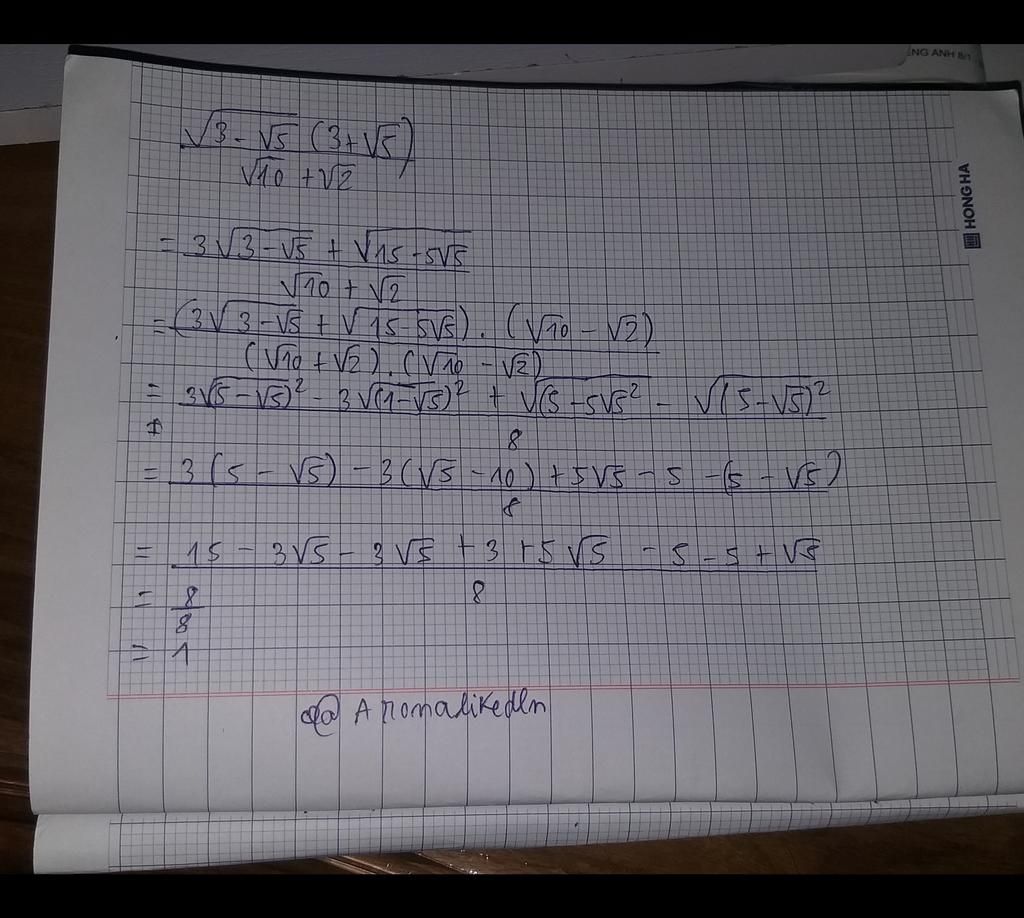 NG ANH 8/1
√(3 - √5) (3 + √5)
√10 + √2
HONG HA
= 3√(3 - √5) + √(15 - 5√5)
√10 + √2
= (3√(3 - √5) + √(15 - 5√5)) . (√10 - √2)
(√10 + √2) . (√10 - √2)
= 3√(5 - √5)² - 3√(1 - √5)² + √(5 - 5√5² - √(5 - √5)²
8
= 3(5 - √5) - 3(√5 - 10) + 5√5 - 5 - (5 - √5)
8
= 15 - 3√5 - 3√5 + 3 + 5√5 - 5 - 5 + √5
8
= 8
8
= 1
@ Anomalikedln